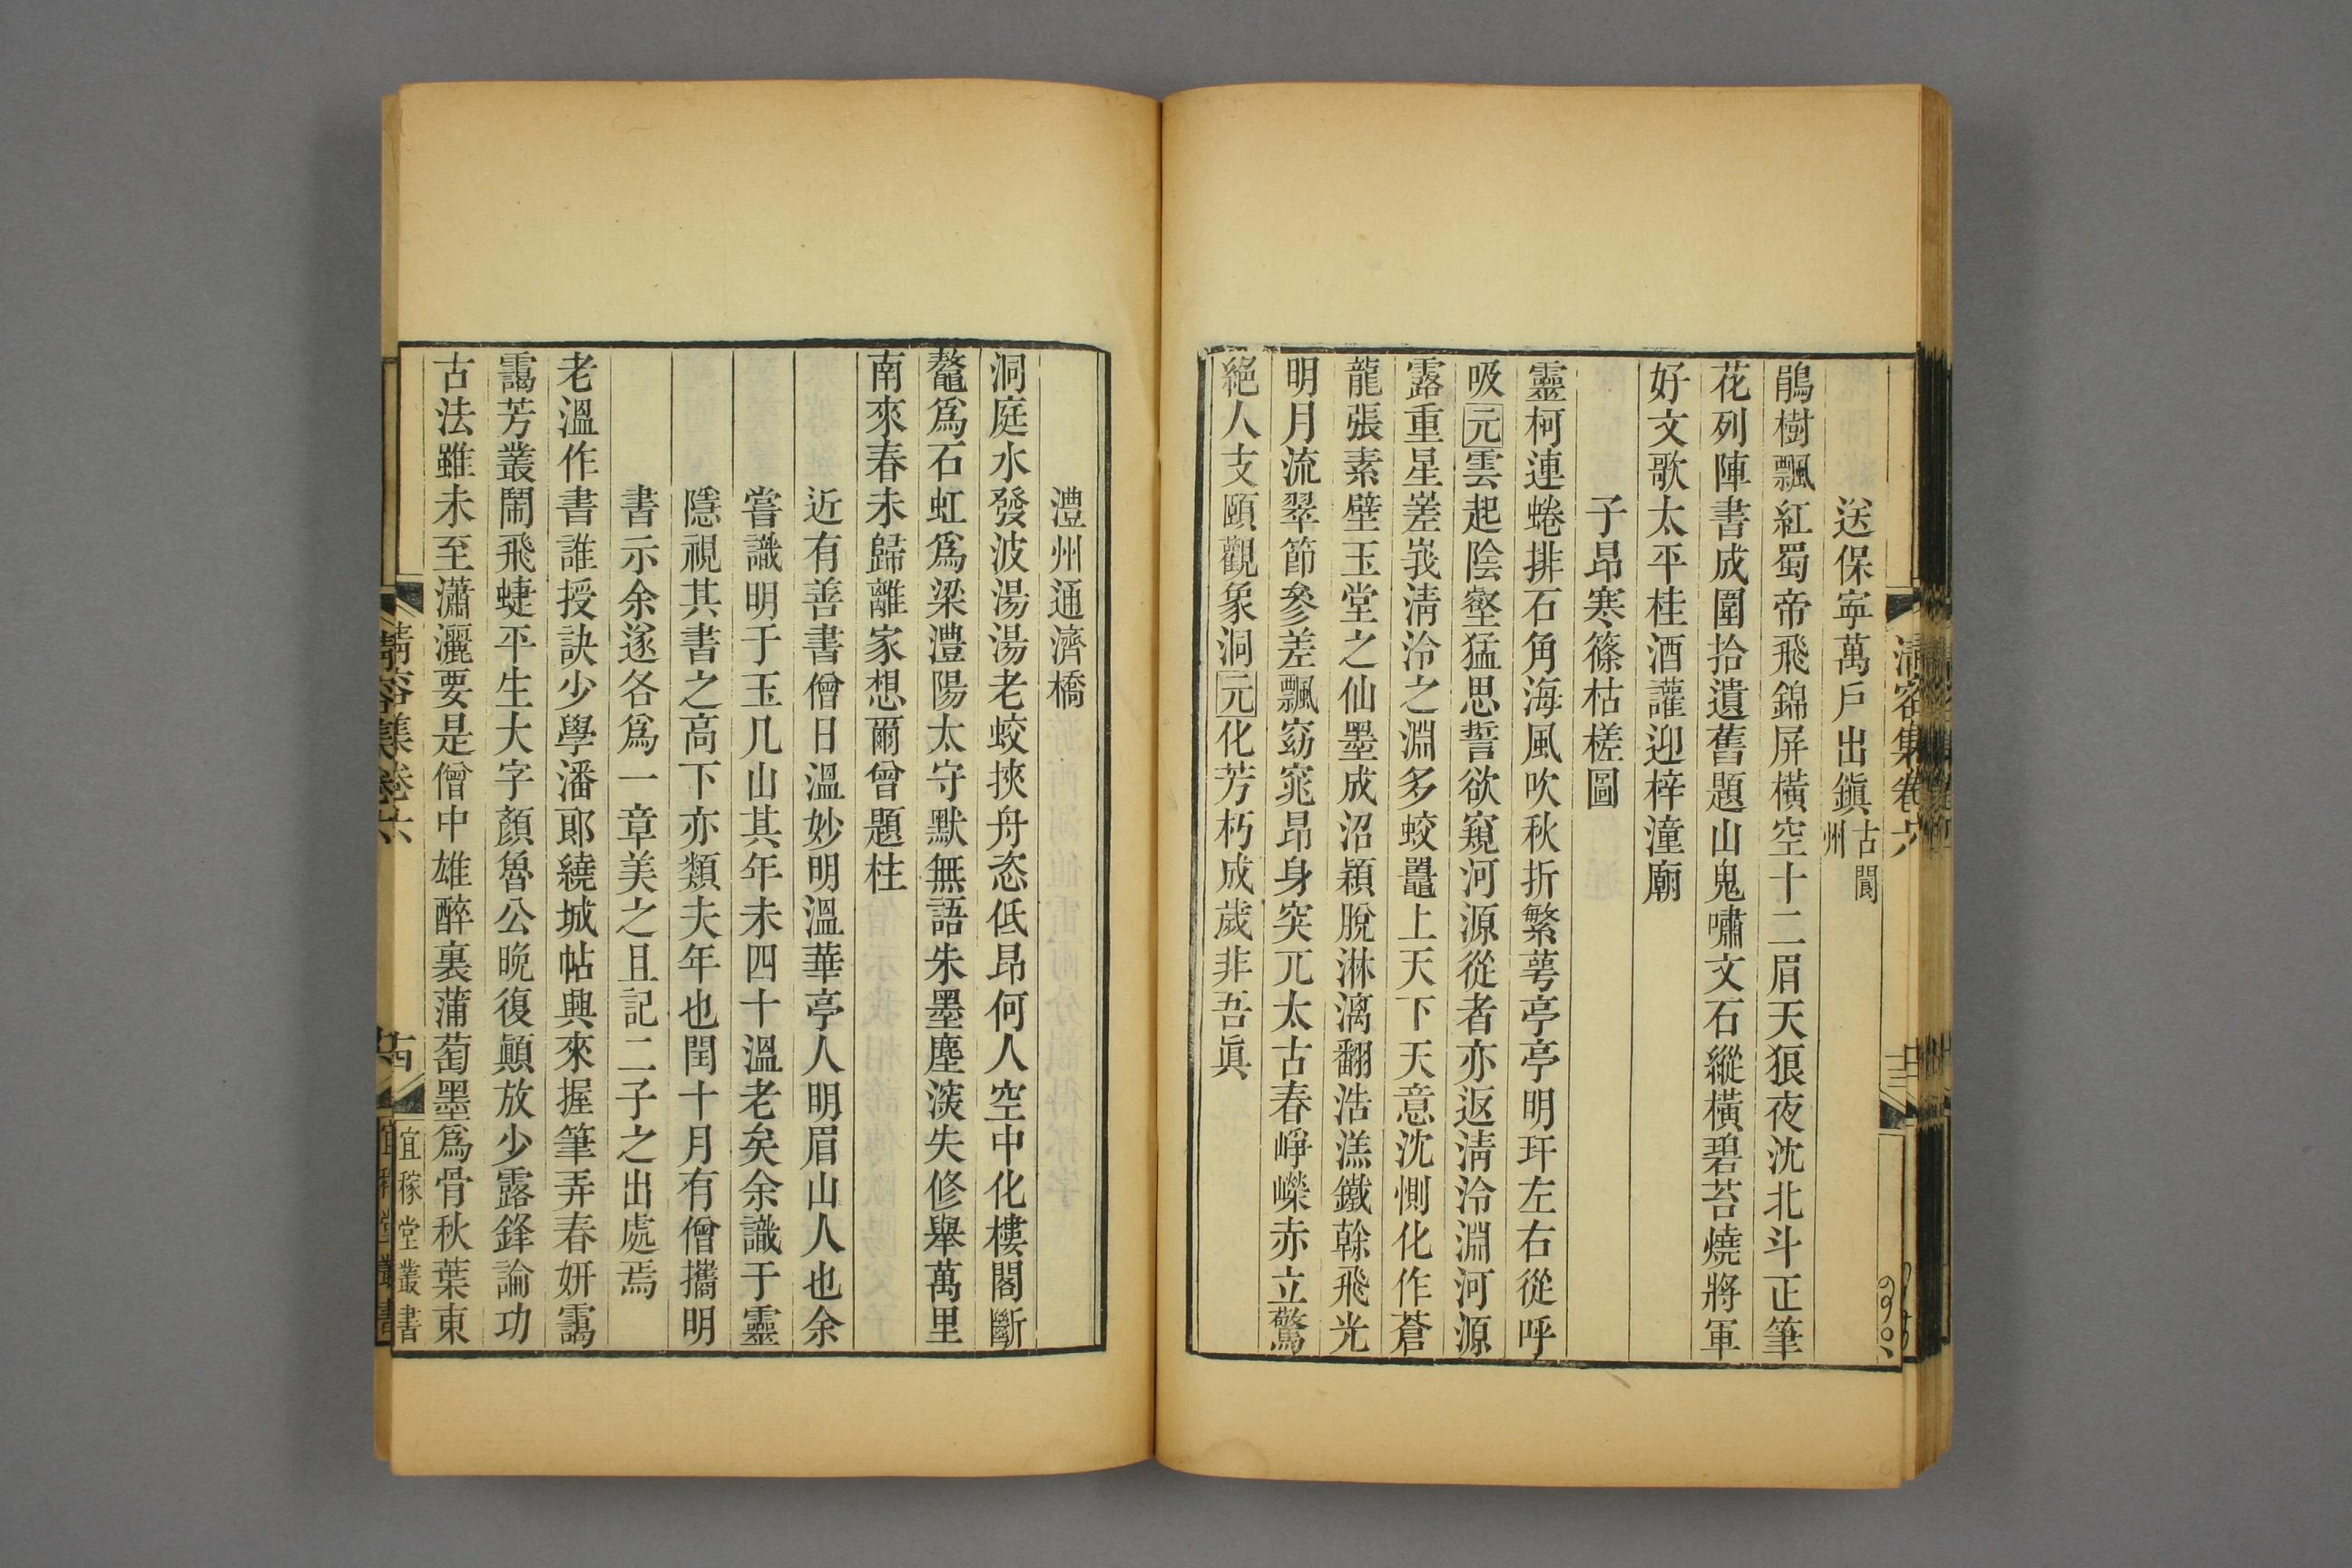 清容集卷六
十三
送保寧萬戶出鎮古閬州
鵑樹飄紅蜀帝飛錦屏橫空十二眉天狼夜沈北斗正筆
花列陣書成圍拾遺舊題山鬼嘯文石縱橫碧苔燒將軍
好文歌太平桂酒讙迎梓潼廟
子昂寒篠枯槎圖
靈柯連蜷排石角海風吹秋折繁萼亭亭明玕左右從呼
吸元雲起陰壑猛思誓欲窺河源從者亦返淸泠淵河源
露重星差峩淸泠之淵多蛟鼉上天下天意沈惻化作蒼
龍張素壁玉堂之仙墨成沼穎脫淋漓翻浩溔鐵榦飛光
明月流翠節參差飄窈窕昂身突兀太古春崢嶸赤立驚
絕人支頤觀象洞元化芳朽成歲非吾眞
澧州通濟橋
洞庭水發波湯湯老蛟挾舟恣低昂何人空中化樓閣斷
鼇爲石虹爲梁澧陽太守默無語朱墨塵淡失修舉萬里
南來春未歸離家想爾曾題柱
近有善書僧日溫妙明溫華亭人明眉山人也余
嘗識明于玉几山其年未四十溫老矣余識于靈
隱視其書之高下亦類夫年也閏十月有僧攜明
書示余遂各爲一章美之且記二子之出處焉
老溫作書誰授訣少學潘郎繞城帖興來握筆弄春妍靄
靄芳叢鬧飛蜨平生大字顏魯公晚復顚放少露鋒論功
古法雖未至瀟灑要是僧中雄醉裏蒲萄墨爲骨秋葉東
清容集卷六
古
宜稼堂叢書